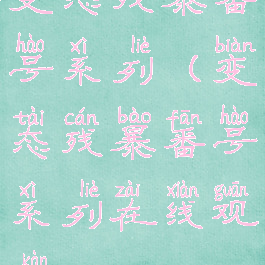 hào xì liè biàn
号系列(变
tài cán bào fān hào
态残暴番号
xì liè zài xiàn guān
系列在线观
kàn